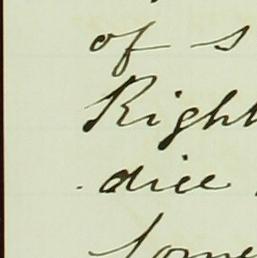 of s
Right
dice
some